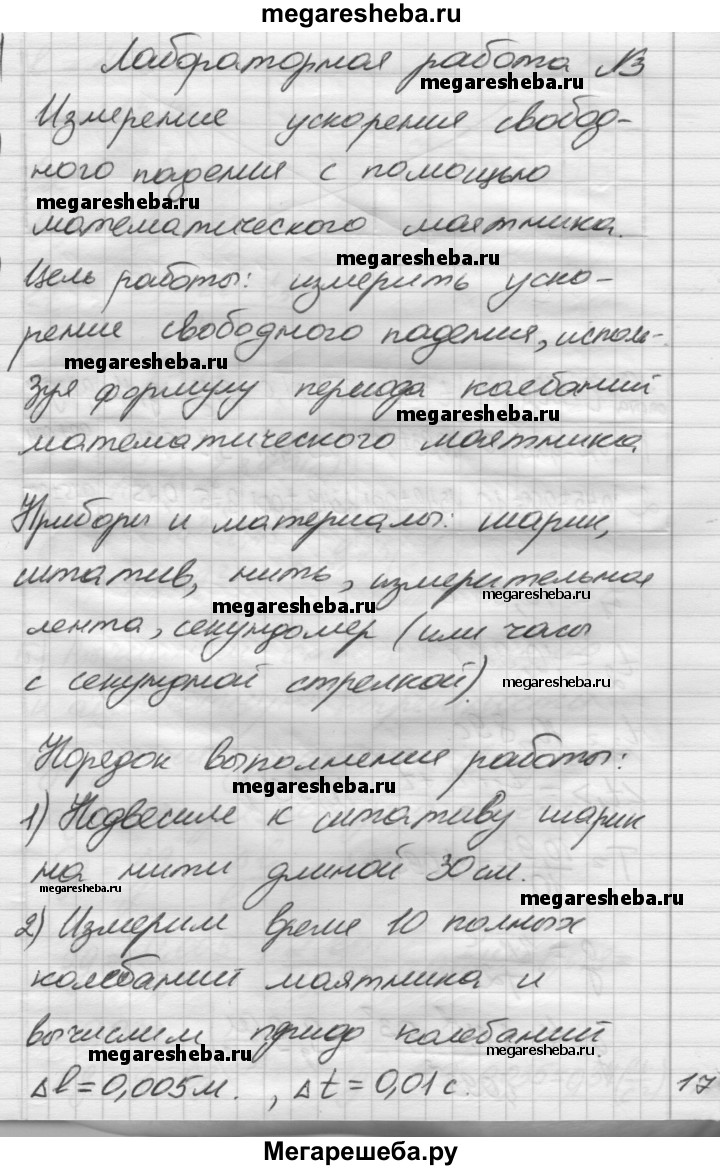 megaresheba.ru
Лабораторная работа №3
megaresheba.ru
Измерение ускорения свобод-
ного падения с помощью
megaresheba.ru
математического маятника.
megaresheba.ru
Цель работы: измерить уско-
рение свободного падения, исполь-
megaresheba.ru
зуя формулу периода колебаний
megaresheba.ru
математического маятника
Приборы и материалы: шарик,
штатив, нить, измерительная
megaresheba.ru
megaresheba.ru
лента, секундомер (или часы
с секундной стрелкой).
megaresheba.ru
Порядок выполнения работы:
megaresheba.ru
1) Подвесили к штативу шарик
на нити длиной 30 см.
megaresheba.ru
2) Измерим время 10 полных
колебаний маятника и
вычислим период колебаний.
megaresheba.ru
megaresheba.ru
Δl=0,005м. , Δt=0,01с.
17
Мегарешеба.ру